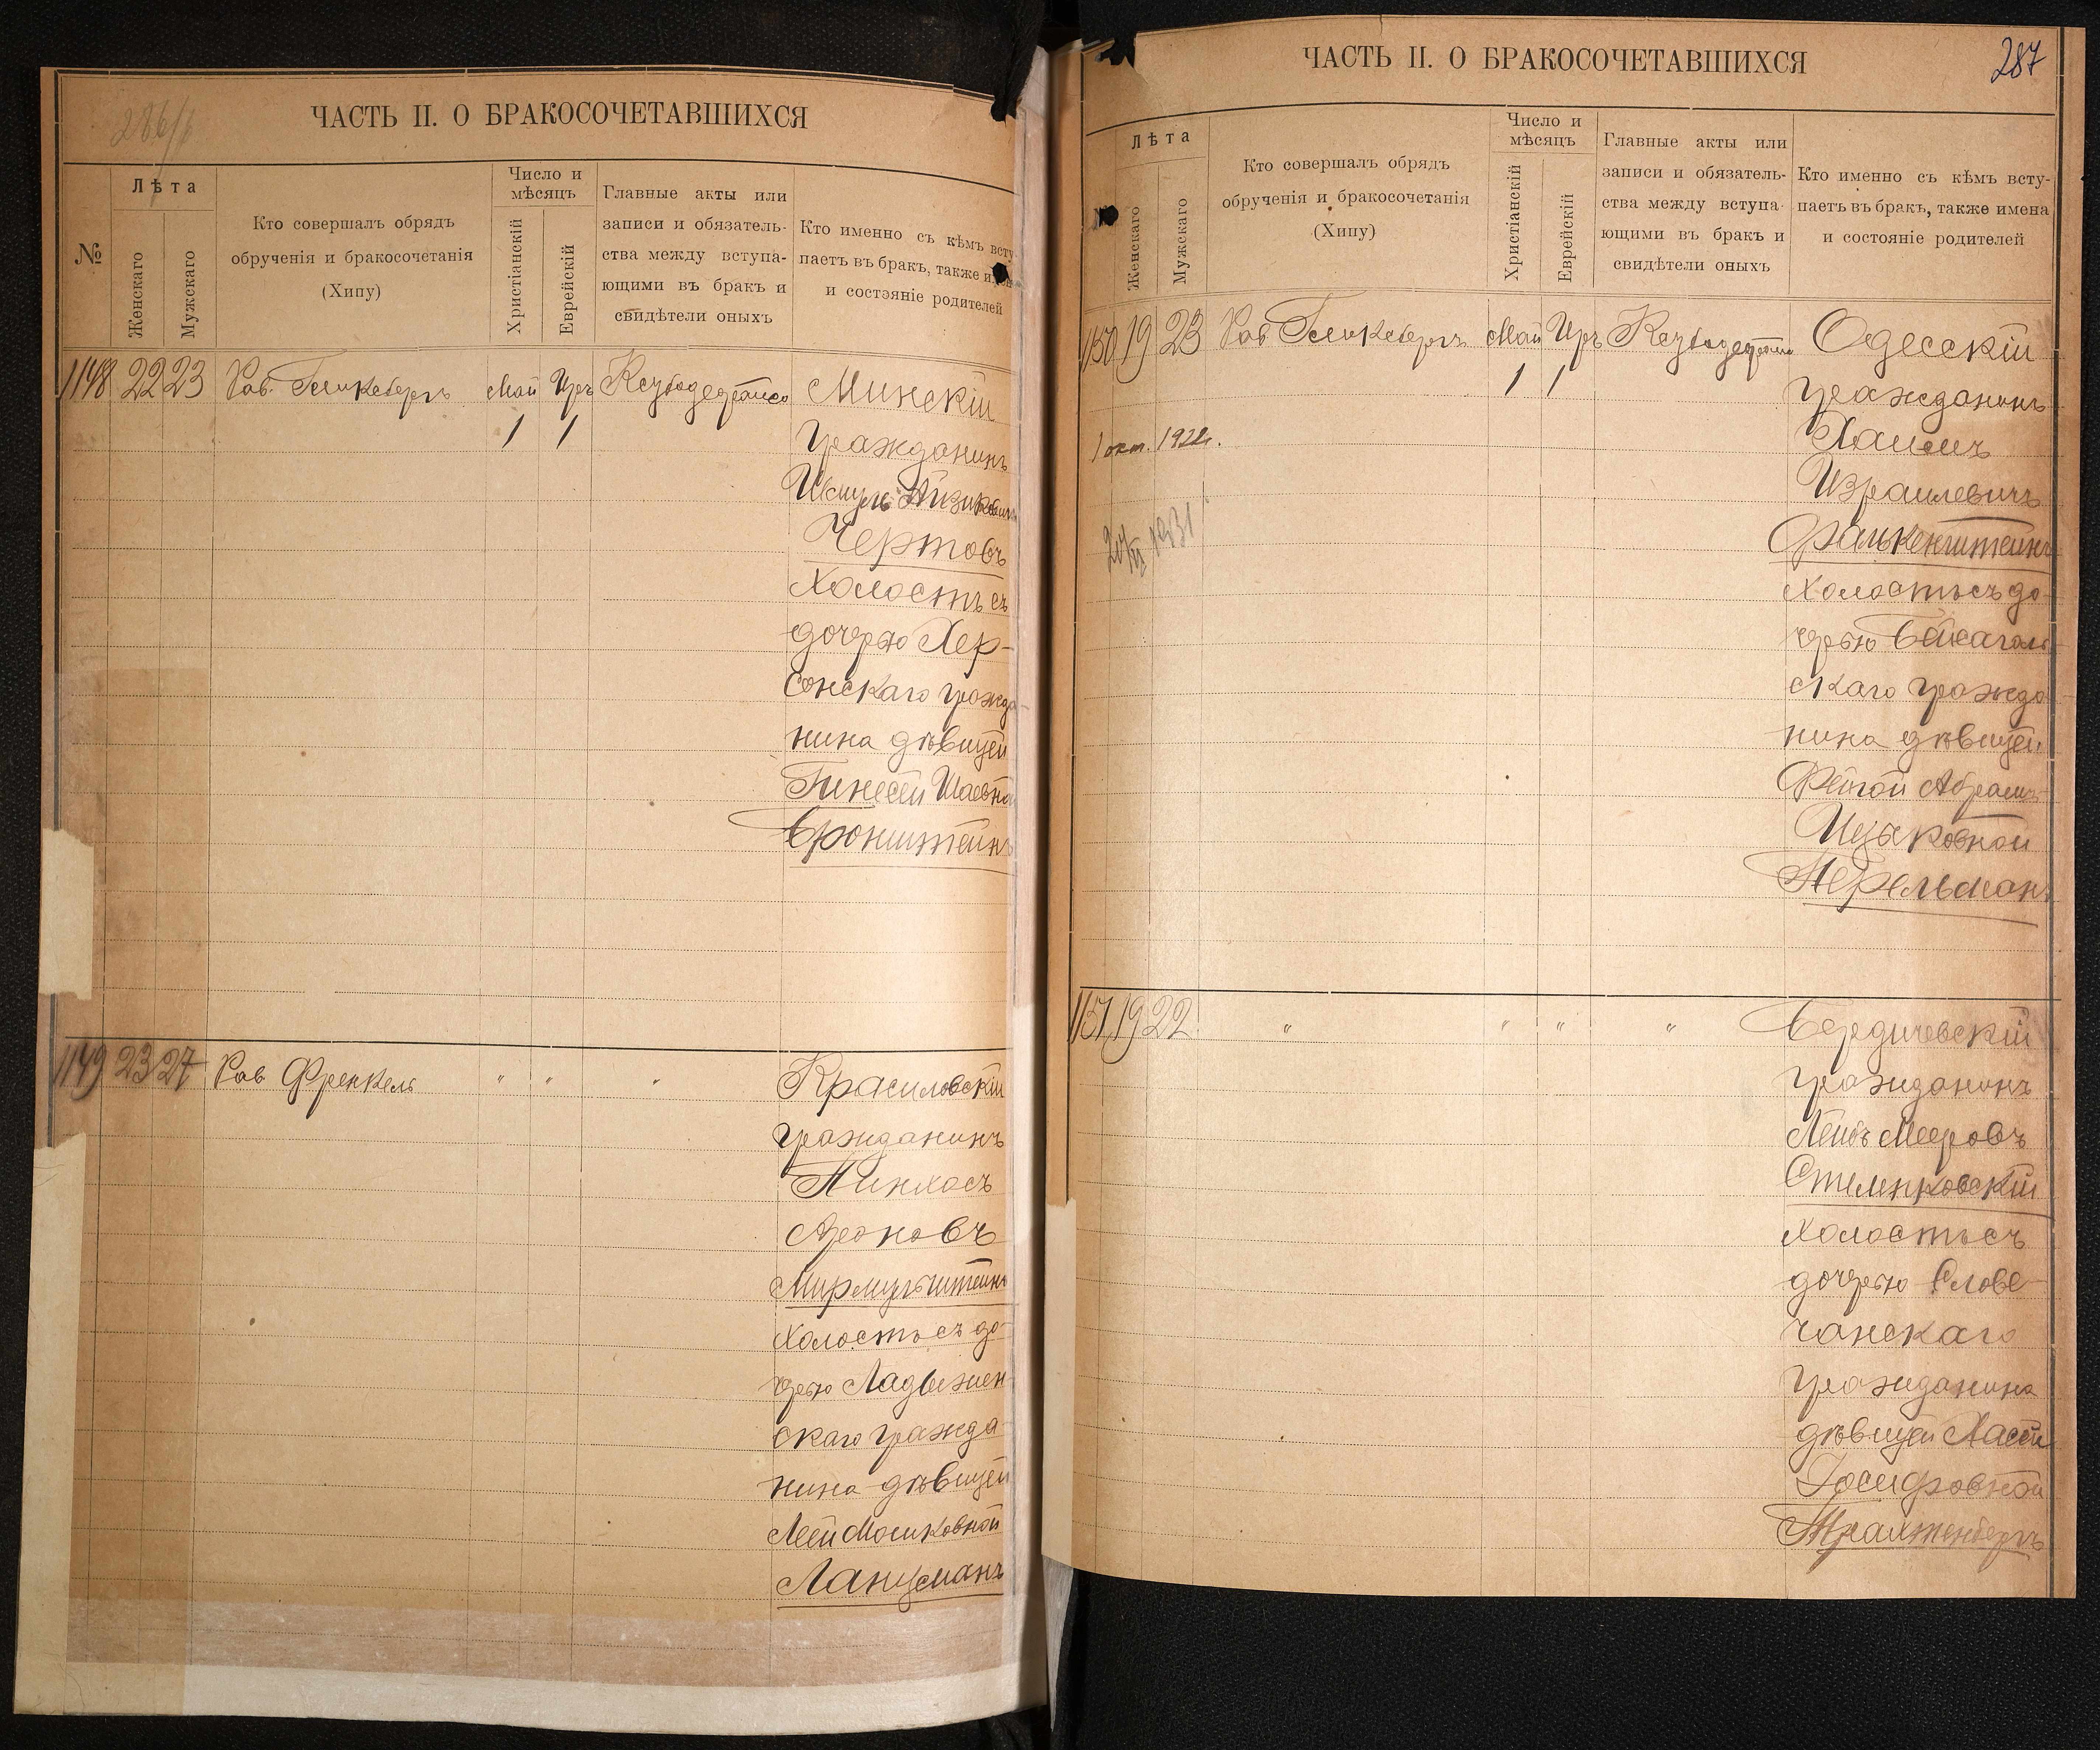 286/б
ЧАСТЬ II. О БРАКОСОЧЕТАВШИХСЯ
№
Лѣта
Женскаго
Мужскаго
Кто совершалъ обрядъ
обрученія и бракосочетанія
(Хипу)
Число и
мѣсяцъ
Христіанскій
Еврейскій
Главные акты или
записи и обязатель-
ства между вступа-
ющими въ бракъ и
свидѣтели оныхъ
Кто именно съ кѣмъ всту
паетъ въ бракъ, также
и состояніе родителей
1148 22 23 Рав. Май Иръ Минскій
1 1
гражданинъ
Чертовъ
холостъ съ
дочерью Хер-
сонскаго гражда-
нина дѣвицей
Гинесей Шаевной
Бронштейнъ
1149 23 27 Рав Френкель " " " Красиловскій
гражданинъ
Пинхасъ
Ароновъ
Мирмульштейнъ
холостъ съ до-
черью Ладыжен
скаго гражда
нина дѣвицей
Леей Мошковной
Ланцманъ
ЧАСТЬ II. О БРАКОСОЧЕТАВШИХСЯ
287
Лѣта
Женскаго
Мужскаго
Кто совершалъ обрядъ
обрученія и бракосочетанія
(Хипу)
Число и
мѣсяцъ
Христіанскій
Еврейскій
Главные акты или
записи и обязатель-
ства между вступа-
ющими въ бракъ и
свидѣтели оныхъ
Кто именно съ кѣмъ всту-
паетъ въ бракъ, также имена
и состояніе родителей
1150 19 23 Рав Май Иръ Одесскій
1 1
гражданинъ
1 окт. 1922г.
Хаимъ
Израилевичъ
1931
Фалькенштейнъ
холостъ съ до-
черью
скаго гражда
нина дѣвицей
Фейгой Абрамъ-
Ицковной
Перельманъ
1151 19 22 " " " " Бердичевскій
гражданинъ
Лейбъ Мееровъ
холостъ съ
дочерью Слове-
чанскаго
гражданина
дѣвицей Хасей
Іосифовной
Трахтенбергъ